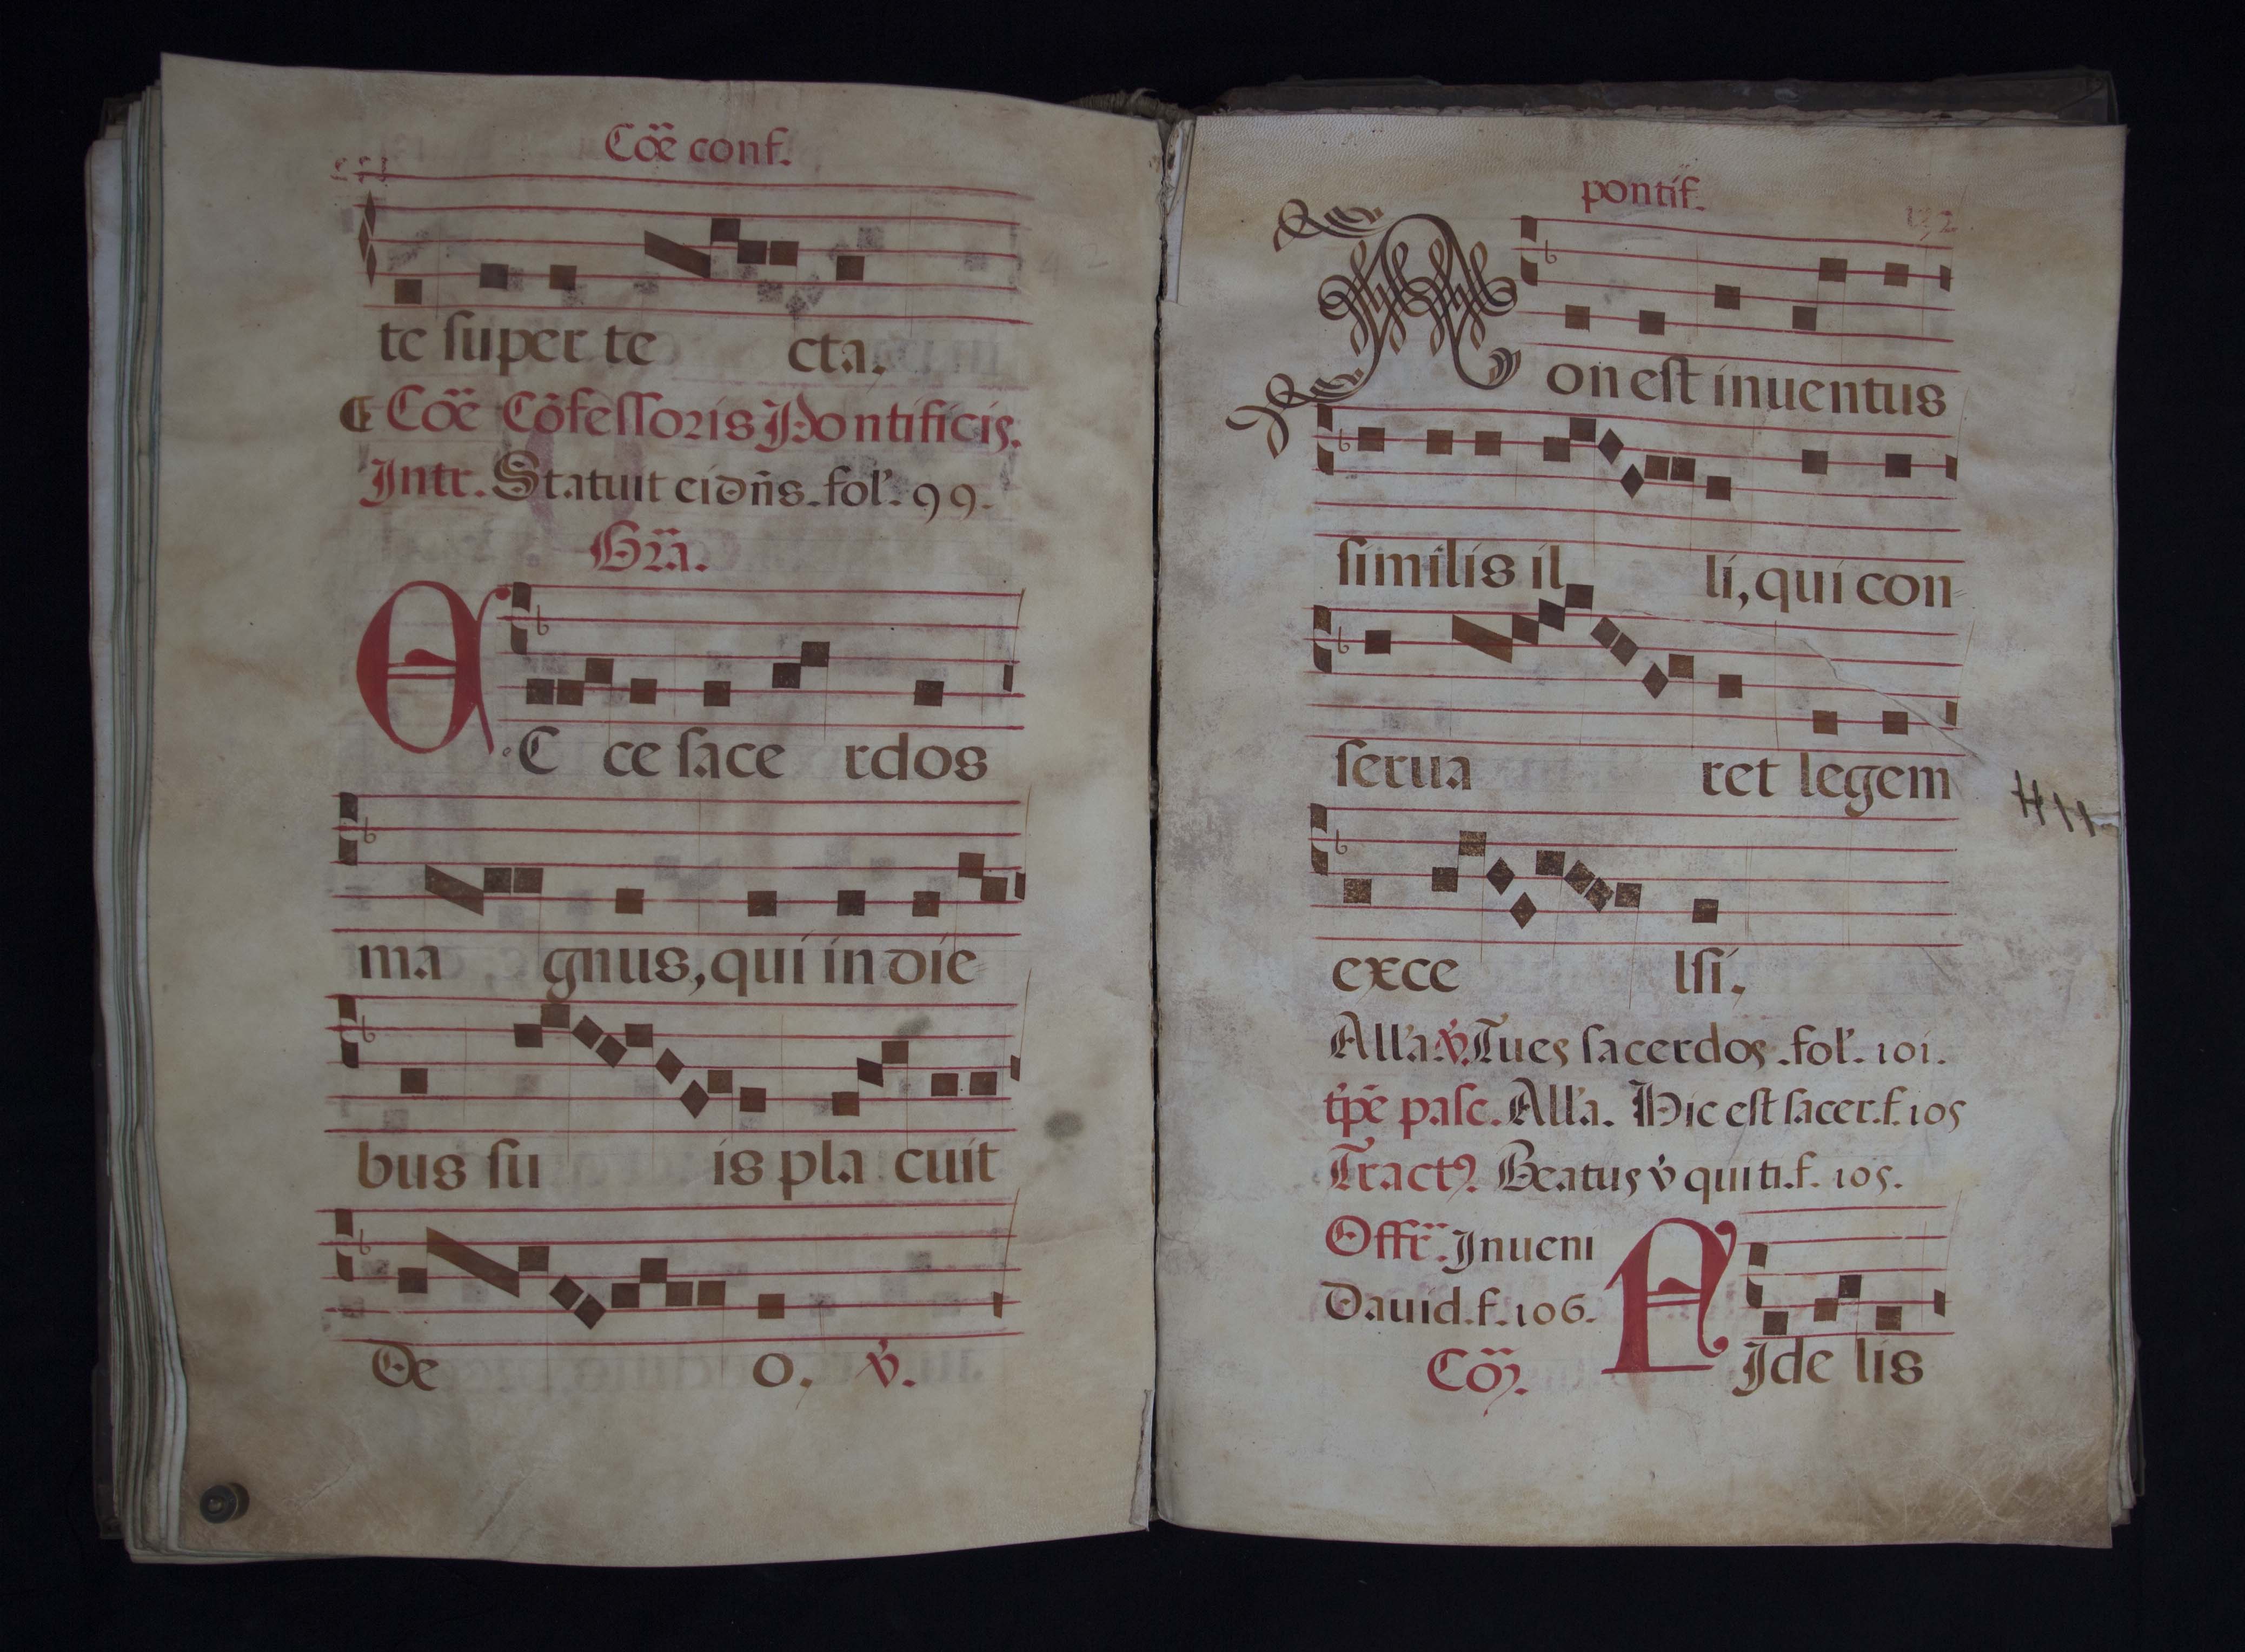 Cõe conf.
te ſuper te cta.
Cõe Cõfeſſoris Pontificis.
Intr. Statuit ei dñs. fol. 99.
Gra.
EC ce ſace rdos
ma gnus, qui in die
bus ſu is pla cuit
De o. ℣.
pontif.
Non eſt inuentus
ſimilis il li, qui con
ſerua ret legem
exce lſi.
Alľa ℣. Tu es ſacerdos. fol. 101.
tp̃e paſc. Alľa. Hic eſt ſacer. f. 105
Tractꝰ. Beatus v̊ qui ti. f. 105.
Offr̃. Inueni
Dauid. f. 106.
Cõ.
FIde lis